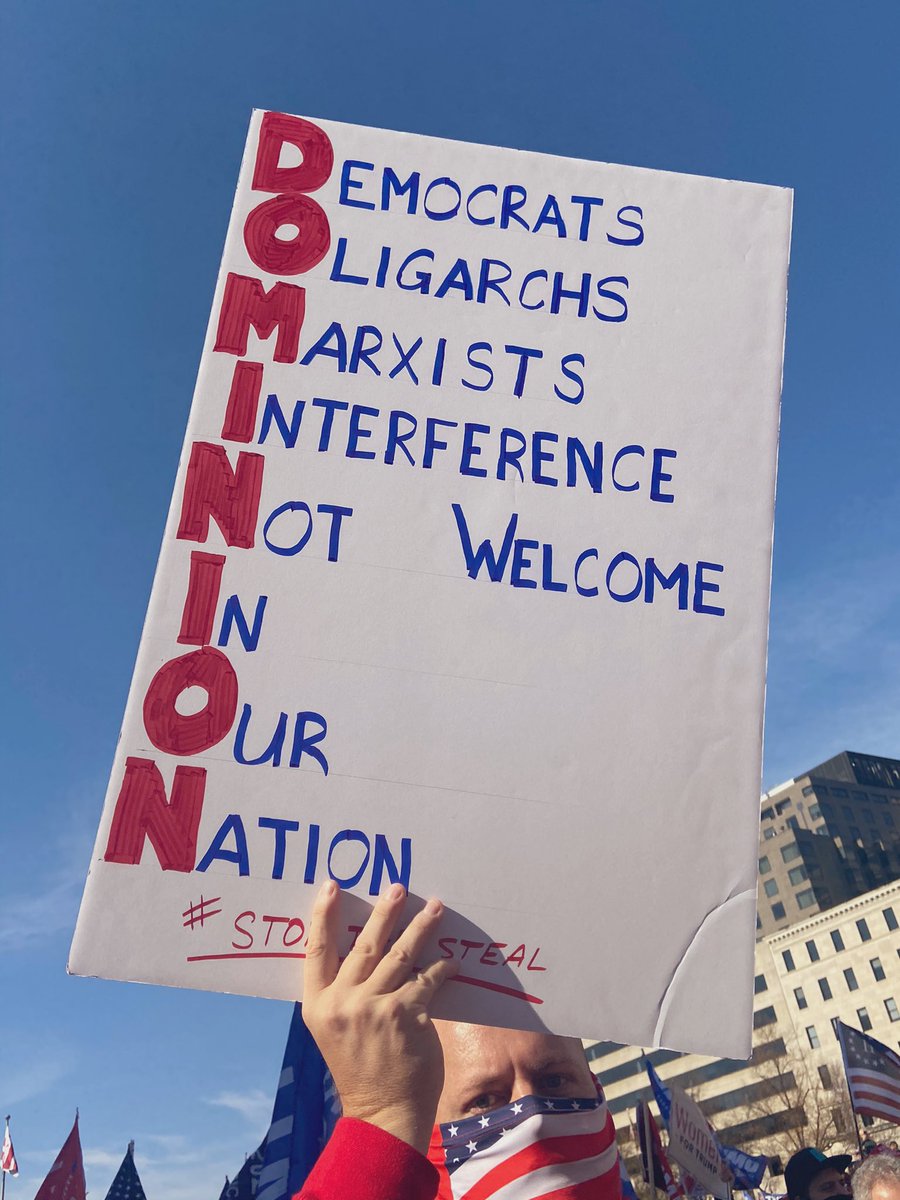 DEMOCRATS
OLIGARCHS
MARXISTS
INTERFERENCE
NOT WELCOME
IN
OUR
NATION
# STOP STEAL
Women
FOR TRUMP